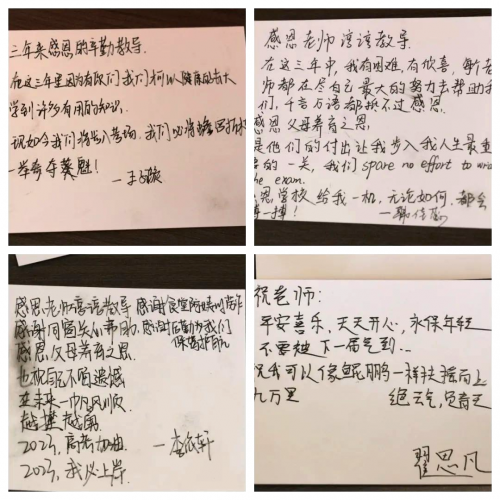 三年来感恩的辛勤教导.
在这三年里因为有你们我们才可以健康的长大
学到许多有用的知识.
现如今我们将步入考场.我们必将蟾宫折桂
一举夺魁!
感恩老师谆谆教导.
在这三年中,我有困难,有欢喜,每个老
师都在尽自己最大的努力去帮助我
们,千言万语都抵不过感恩.
感恩父母养育之恩
是他们的付出让我步入我人生最重
要的一关,我们spare no effort to win
the exam.
感恩学校给我一机,无论如何.都会
搏一搏!
感恩老师谆谆教导 感谢食堂
感谢同窗 帮助.感谢后勤为我们保驾护航
感恩父母养育之恩
也祝自己不留遗憾
在未来一帆风顺
越挫越勇
2023,高考加油.
2023,我必上岸.
祝老师:
平安喜乐,天天开心,永保年轻
不要被下一届气到...
祝我可以像鲲鹏一样扶摇而上
九万里 绝云气,负青天
翟思凡